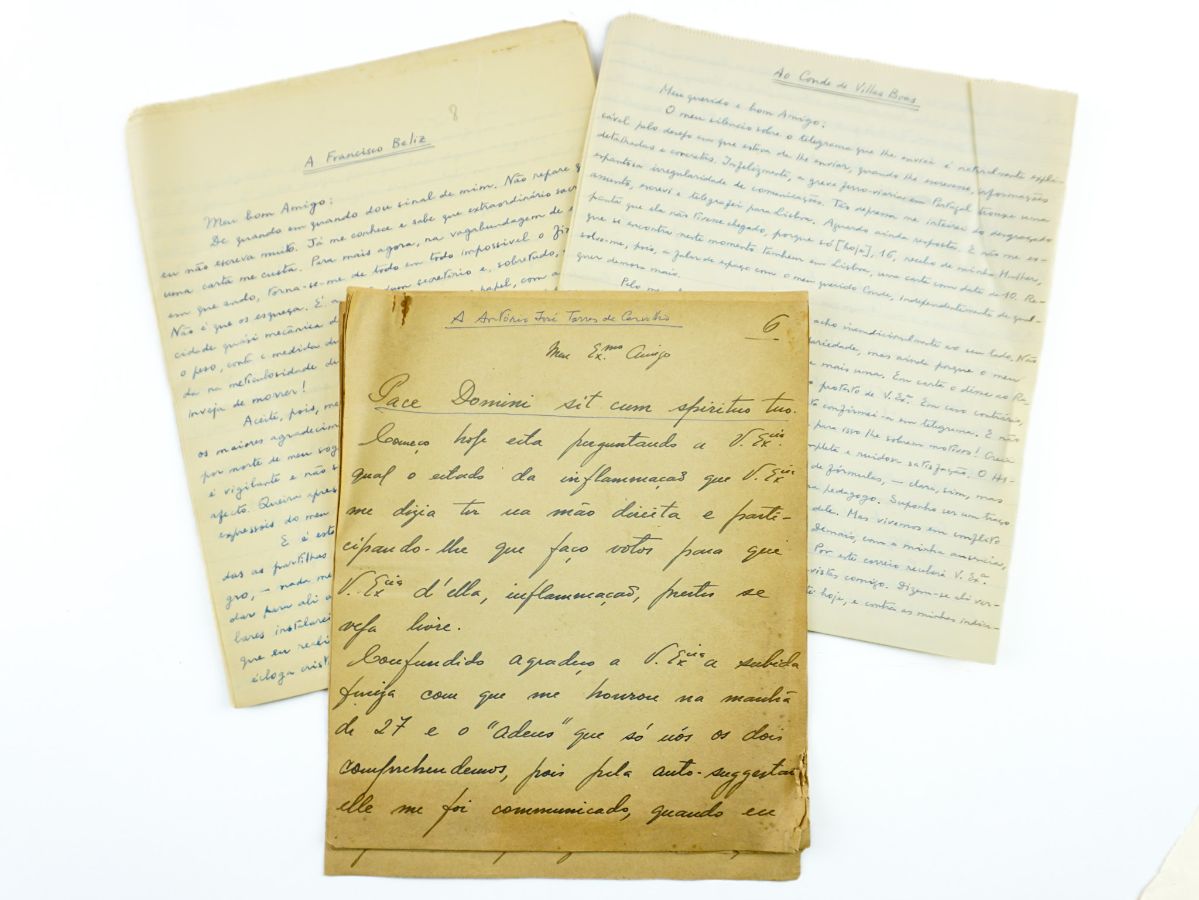 8
A Francisco Beliz
Meu bom Amigo:
De quando em quando dou sinal de mim. Não repare q
eu não escreva muito. Já me conhece e sabe que extraordinário sacr
uma carta me custa. Para mais agora, na vagabundagem de
em que ando, torna-se-me de todo em todo impossível o
Não é que os esqueça. É a dum secretário e, sobretudo,
cidade quasi mecânica d papel, com a
o peso, conto e medida du
da na meticulosidade di
inveja de morrer!
Aceite, pois, me
os maiores agradecim
por morte de meu sog
é vigilante e não s
afecto. Queira apres
expressões do meu
E é esta
das as partilhas
gro, — nada me
dar para ali a
bares instalar
que eu reali
écloga crist
Ao Conde de Villas Boas
Meu querido e bom Amigo:
O meu silencio sobre o telegrama que lhe enviei é naturalmente expli-
cável pelo desejo em que estava de lhe enviar, quando lhe escrevesse, informações
detalhadas e concretas. Infelizmente, a greve ferro-viaria em Portugal trouxe uma
espantosa irregularidade de comunicações. Tão depressa me inteirei do desgraçado
assunto, escrevi e telegrafei para Lisboa. Aguardo ainda resposta. E não me es-
panta que ela não tivesse chegado, porque só [hoje], 16, recebo de minha Mulher,
que se encontra neste momento tambem em Lisboa, uma carta com data de 10. Re-
solvo-me, pois, a falar de espaço com o meu querido Conde, independentemente de qual-
quer demora mais.
Pelo me
acho incondicionalmente ao seu lado. Não
ariedade, mas ainda porque o meu
mais uma. Em carta o disse ao Ra-
protesto de V. Ex.ª Em caso contrário,
o confirmei em telegrama. E não
para isso lhe sobram motivos! Creia
mpleta e ruidosa satisfação. O Hi-
de fórmulas, — clara, sim, mas
pedagogo. Suponho ser um traço
dele. Mas vivemos em conflito
Demais, com a minha ausencia,
Por este correio receberá V. Ex.ª
vistos comigo. Dizem-se ali ver-
hoje, e contra as minhas indica-
A António José Torres de Carvalho
6
Meu Ex.mo Amigo
Pace Domini sit cum spirituo tuo.
Começo hoje esta perguntando a V. Ex.cia
qual o estado da inflammação que V. Ex.cia
me dizia ter na mão direita e parti-
cipando-lhe que faço votos para que
V. Ex.cia d'ella, inflammação, prestes se
veja livre.
Confundido agradeço a V. Ex.cia a subida
fineza com que me honrou na manhã
de 27 e o "adeus" que só nós os dois
comprehendemos, pois pela auto-suggestão
elle me foi communicado, quando eu